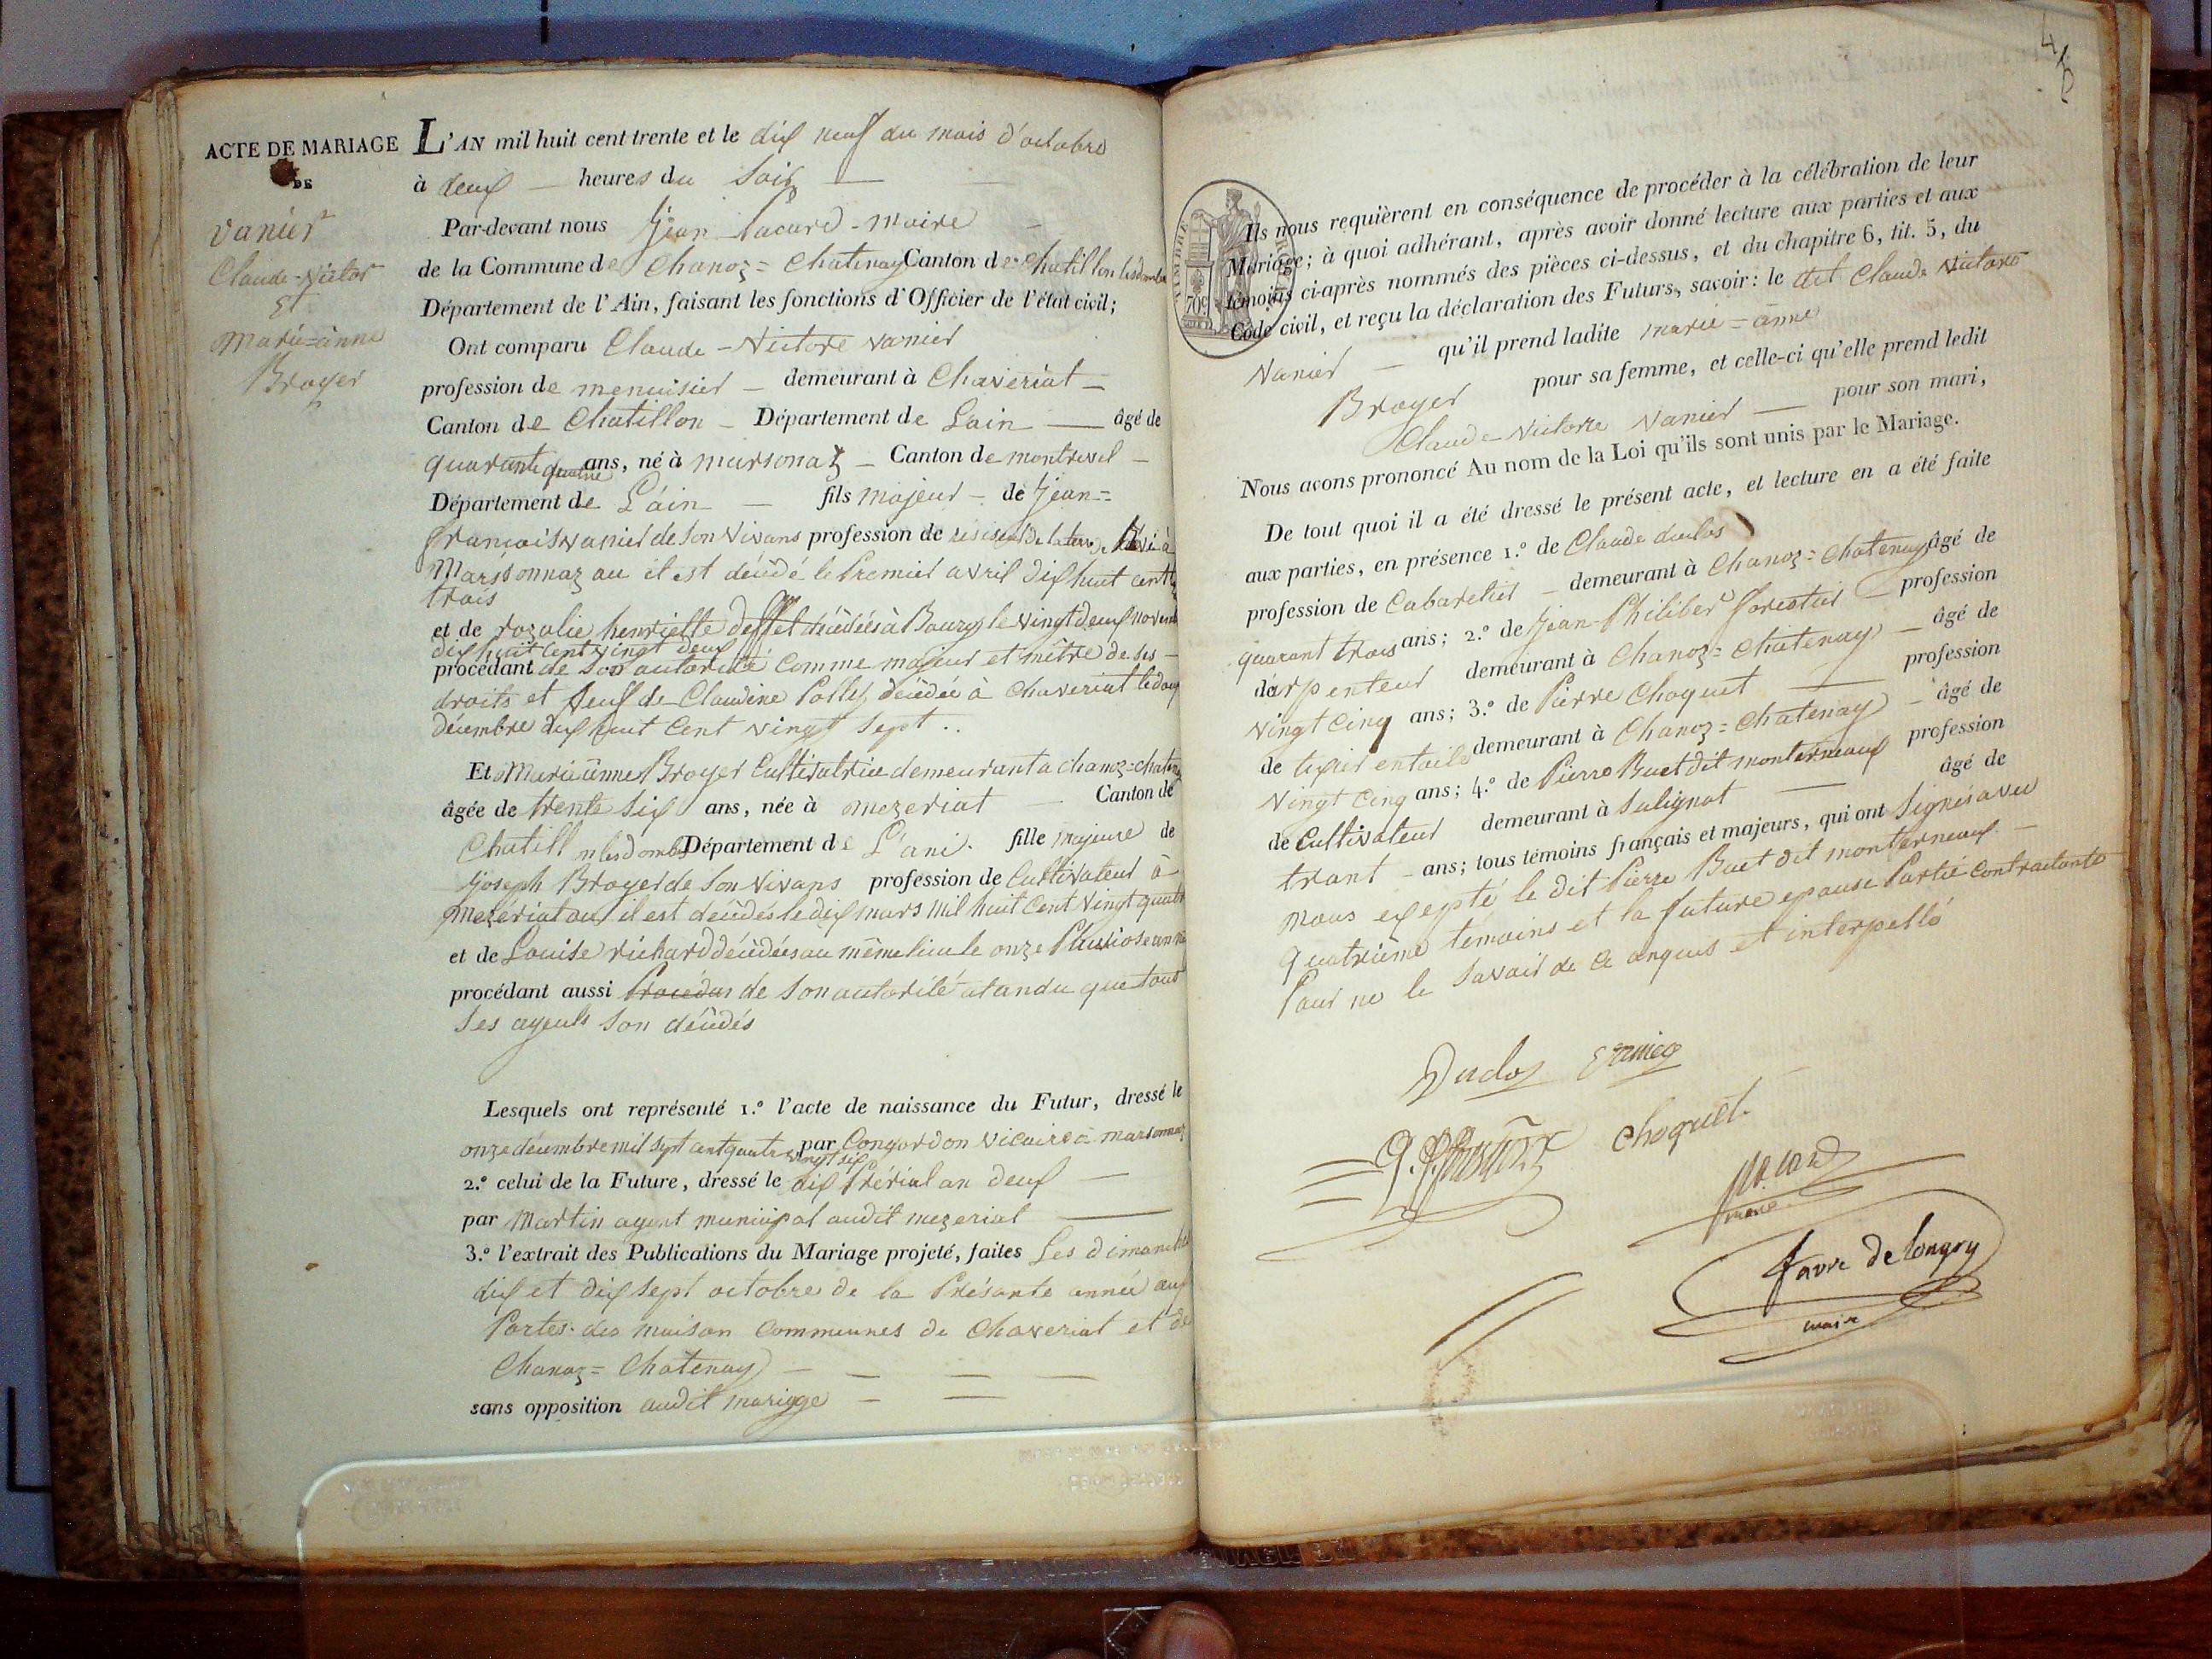 ACTE DE MARIAGE
DE
Vanier
Claude-Victor
Et
Marie=anne
Broyer
L'AN mil huit cent trente et le dix neuf du mois d'octobre
à deux heures du Soir
Par-devant nous Jean Pacard - Maire
de la Commune de Chanoz=Chatenay Canton de Chatillon lesdombes
Département de l'Ain, faisant les fonctions d'Officier de l'état civil;
Ont comparu Claude-Victore Vanier
profession de menuisier demeurant à Chaveriat
Canton de Chatillon Département de Lain âgé de
quarante quatre ans, né à marsonaz Canton de montrevel
Département de L'ain fils majeur de Jean=
francois Vanier de Son Vivans profession de
Marssonnaz au il est décédé le Premier avril dixhuit cent
trois
et de rozalie henriette décédées à Bourg le vingt deux novembre
dixhuit cent vingt deux
procédant de Son autorité Comme majeur et mètre de ses
droits et veuf de Claudine Pollet décédée à Chaveriat le douze
décembre dix huit Cent vingt Sept ..
Et Marie anne Broyer Cultivatrice demeurant a chanoz=chatenay
âgée de trente Six ans, née à mezeriat Canton de
Chatill n lesdombes Département de L'ani. fille majeure de
Joseph Broyer de Son Vivans profession de Cultivateur à
Mezériat au il est décédés le dix mars Mil huit Cent Vingt quatre
et de Louise richard décédées au même lieu le onze Pluviose an
procédant aussi Procédas de Son autorité atandu que tous
Ses ayeuls Son décédés
Lesquels ont représenté 1.º l'acte de naissance du Futur, dressé le
onze décembre mil sept cent quatre vingt six par Congordon Vicaire à marsonnaz
2.º celui de la Future, dressé le dix Prérial an deux
par Martin agent municipal audit mezeriat
3.º l'extrait des Publications du Mariage projeté, faites Les dimanches
dix et dix sept octobre de la Présante année aux
Portes des maison Communes de Chaveriat et de
Chanoz=Chatenay
sans opposition audit mariage
TIMBRE
70c
Ils nous requièrent en conséquence de procéder à la célébration de leur
Mariage; à quoi adhérant, après avoir donné lecture aux parties et aux
témoins ci-après nommés des pièces ci-dessus, et du chapitre 6, tit. 5, du
Code civil, et reçu la déclaration des Futurs, savoir: le dit Claude Victore
Vanier qu'il prend ladite marie=anne
Broyer pour sa femme, et celle-ci qu'elle prend ledit
Claude Victorre Vanier pour son mari,
Nous avons prononcé Au nom de la Loi qu'ils sont unis par le Mariage.
De tout quoi il a été dressé le présent acte, et lecture en a été faite
aux parties, en présence 1.º de Claude duclos
profession de Cabaretier demeurant à Chanoz=Chatenay âgé de
quarant trois ans; 2.º de Jean-Philiber forestier profession
d'arpenteur demeurant à Chanoz=Chatenay âgé de
Vingt Cinq ans; 3.º de Pierre Choquet profession
de tixier entoile demeurant à Chanoz=Chatenay âgé de
Vingt Cinq ans; 4.º de Pierre Buet dit monterneux profession
de Cultivateur demeurant à Sulignat âgé de
trant ans; tous témoins français et majeurs, qui ont Signés avec
Nous exepté le dit Pierre Buet dit monterneux
quatrième témoins et la future epause Partie Contractante
Pour ne le Savoir de ce anquis et interpellé
Duclos Vanier
choquet
Pacard
maire
favre de longry
maire